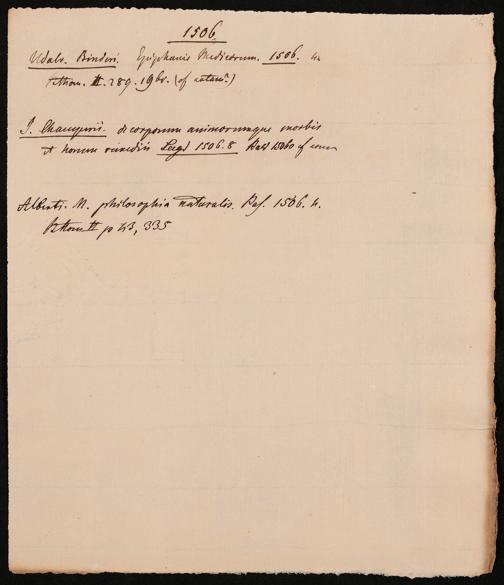 1506.
Udalr. Binderi. Epiphanie Medicorum. 1506. 4.
II. 289. 1960. (of
S. Champerii. de corporum animorumque morbis
et horum remediis Lugd 1506. 8
Alberti. M. philosophia naturalis. Bas. 1506. 4.
II p 43, 335